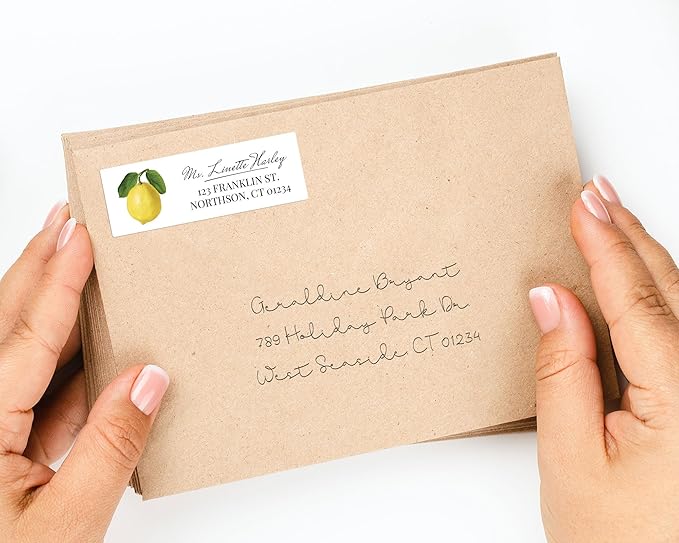 Ms. Linette Harley
123 FRANKLIN ST.
NORTHSON, CT 01234
Geraldine Bryant
789 Holiday Park Dr.
West Seaside CT 01234